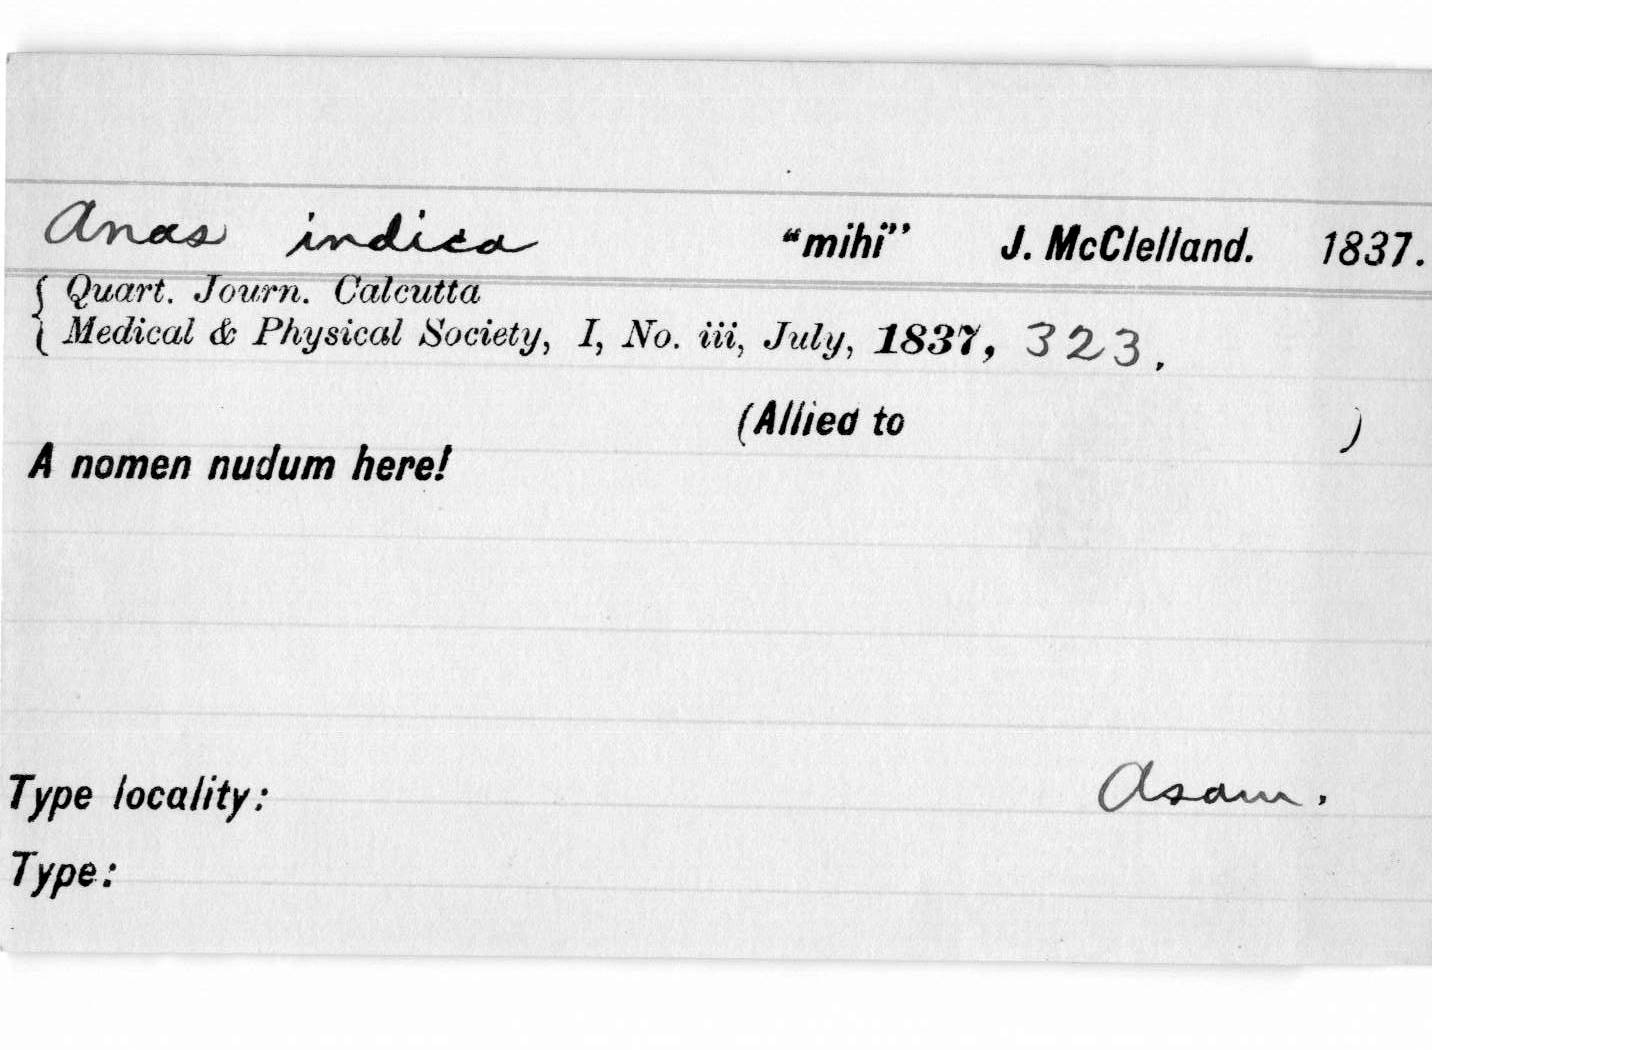 Anas indica "mihi" J. McClelland. 1837.
Quart. Journ. Calcutta
Medical & Physical Society, I, No. iii, July, 1837, 323.
(Allied to )
A nomen nudum here!
Type locality: Asam.
Type: